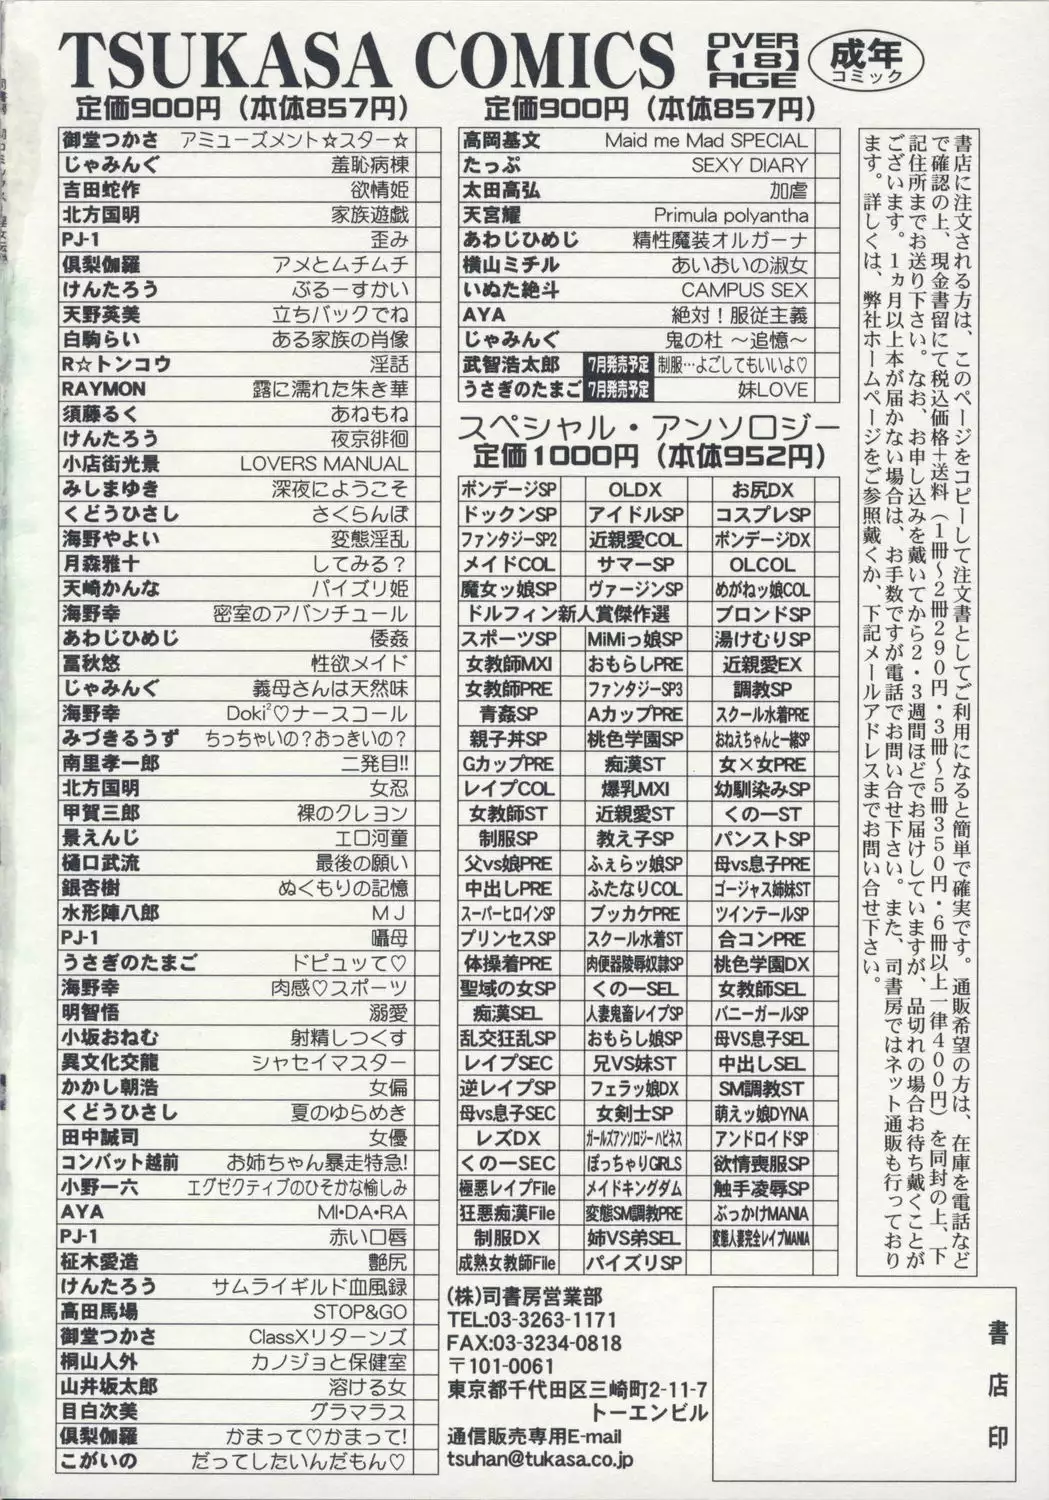 TSUKASA COMICS
OVER
【18】
AGE
成年
コミック
定価900円（本体857円）
御堂つかさ アミューズメント☆スター☆
じゃみんぐ 羞恥病棟
吉田蛇作 欲情姫
北方国明 家族遊戯
PJ-1 歪み
倶梨伽羅 アメとムチムチ
けんたろう ぶるーすかい
天野英美 立ちバックでね
白駒らい ある家族の肖像
R☆トンコウ 淫話
RAYMON 露に濡れた朱き華
須藤るく あねもね
けんたろう 夜京徘徊
小店街光景 LOVERS MANUAL
みしまゆき 深夜にようこそ
くどうひさし さくらんぼ
海野やよい 変態淫乱
月森雅十 してみる？
天崎かんな パイズリ姫
海野幸 密室のアバンチュール
あわじひめじ 倭姦
冨秋悠 性欲メイド
じゃみんぐ 義母さんは天然味
海野幸 Doki²♡ナースコール
みづきるうず ちっちゃいの？おっきいの？
南里孝一郎 二発目!!
北方国明 女忍
甲賀三郎 裸のクレヨン
景えんじ エロ河童
樋口武流 最後の願い
銀杏樹 ぬくもりの記憶
水形陣八郎 MJ
PJ-1 囁母
うさぎのたまご ドピュッて♡
海野幸 肉感♡スポーツ
明智悟 溺愛
小坂おねむ 射精しつくす
異文化交龍 シャセイマスター
かかし朝浩 女偏
くどうひさし 夏のゆらめき
田中誠司 女優
コンバット越前 お姉ちゃん暴走特急!
小野一六 エグゼクティブのひそかな愉しみ
AYA MI•DA•RA
PJ-1 赤い口唇
柾木愛造 艶尻
けんたろう サムライギルド血風録
高田馬場 STOP&GO
御堂つかさ ClassXリターンズ
桐山人外 カノジョと保健室
山井坂太郎 溶ける女
目白次美 グラマラス
倶梨伽羅 かまって♡かまって!
こがいの だってしたいんだもん♡
定価900円（本体857円）
高岡基文 Maid me Mad SPECIAL
たっぷ SEXY DIARY
太田高弘 加虐
天宮耀 Primula polyantha
あわじひめじ 精性魔装オルガーナ
横山ミチル あいおいの淑女
いぬた絶斗 CAMPUS SEX
AYA 絶対！服従主義
じゃみんぐ 鬼の杜 〜追憶〜
武智浩太郎 7月発売予定 制服…よごしてもいいよ♡
うさぎのたまご 7月発売予定 妹LOVE
スペシャル・アンソロジー
定価1000円（本体952円）
ボンデージSP OLDX お尻DX
ドックンSP アイドルSP コスプレSP
ファンタジーSP2 近親愛COL ボンデージDX
メイドCOL サマーSP OLCOL
魔女ッ娘SP ヴァージンSP めがねッ娘COL
ドルフィン新人賞傑作選 ブロンドSP
スポーツSP MiMiっ娘SP 湯けむりSP
女教師MXI おもらしPRE 近親愛EX
女教師PRE ファンタジーSP3 調教SP
青姦SP AカップPRE スクール水着PRE
親子丼SP 桃色学園SP おねえちゃんと一緒SP
GカップPRE 痴漢ST 女×女PRE
レイプCOL 爆乳MXI 幼馴染みSP
女教師ST 近親愛ST くの一ST
制服SP 教え子SP パンストSP
父vs娘PRE ふぇらッ娘SP 母vs息子PRE
中出しPRE ふたなりCOL ゴージャス姉妹ST
スーパーヒロインSP ブッカケPRE ツインテールSP
プリンセスSP スクール水着ST 合コンPRE
体操着PRE 肉便器陵辱奴隷SP 桃色学園DX
聖域の女SP くの一SEL 女教師SEL
痴漢SEL 人妻鬼畜レイプSP バニーガールSP
乱交狂乱SP おもらし娘SP 母VS息子SEL
レイプSEC 兄VS妹ST 中出しSEL
逆レイプSP フェラッ娘DX SM調教ST
母vs息子SEC 女剣士SP 萌えッ娘DYNA
レズDX ガールズアンソロジーハピネス アンドロイドSP
くの一SEC ぽっちゃりGIRLS 欲情喪服SP
極悪レイプFile メイドキングダム 触手凌辱SP
狂悪痴漢File 変態SM調教PRE ぶっかけMANIA
制服DX 姉VS弟SEL 変態人妻完全レイプMANIA
成熟女教師File パイズリSP
書店に注文される方は、このページをコピーして注文書としてご利用になると簡単で確実です。通販希望の方は、在庫を電話など
で確認の上、現金書留にて税込価格＋送料（1冊〜2冊290円・3冊〜5冊350円・6冊以上一律400円）を同封の上、下
記住所までお送り下さい。なお、お申し込みを戴いてから2・3週間ほどでお届けしていますが、品切れの場合お待ち戴くことが
ございます。1ヵ月以上本が届かない場合は、お手数ですが電話でお問い合せ下さい。また、司書房ではネット通販も行っており
ます。詳しくは、弊社ホームページをご参照戴くか、下記メールアドレスまでお問い合せ下さい。
(株)司書房営業部
TEL:03-3263-1171
FAX:03-3234-0818
〒101-0061
東京都千代田区三崎町2-11-7
トーエンビル
通信販売専用E-mail
tsuhan@tukasa.co.jp
書店印